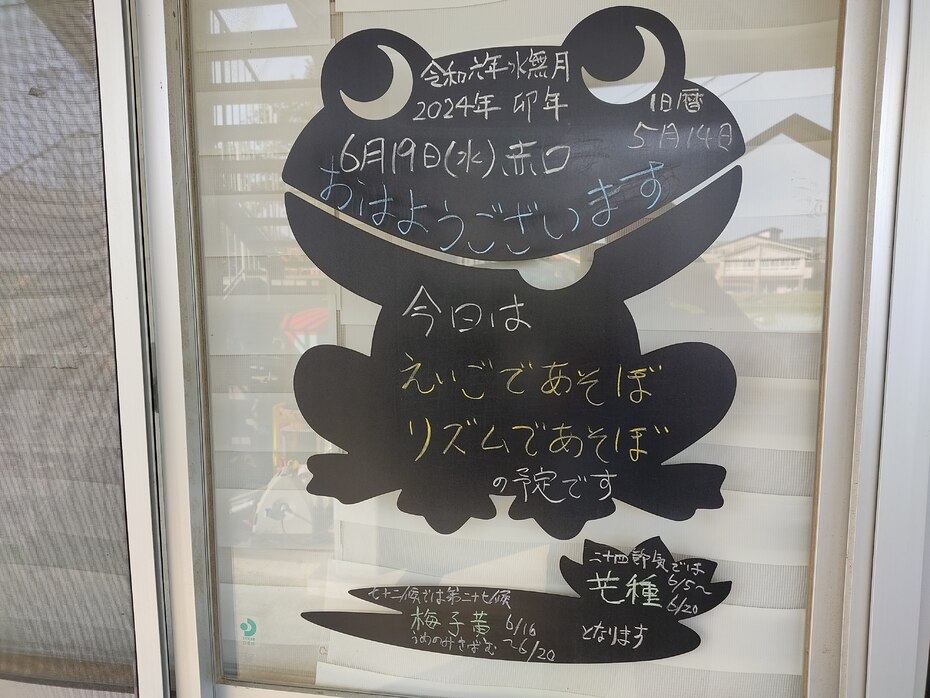 令和六年水無月
2024年 卯年
旧暦
5月14日
6月19日(水)赤口
おはようございます
今日は
えいごであそぼ
リズムであそぼ
の予定です
二十四節気では
芒種 6/5～
6/20
となります
七十二候では第二十七候
梅子黄 6/16
うめのみきばむ ～6/20